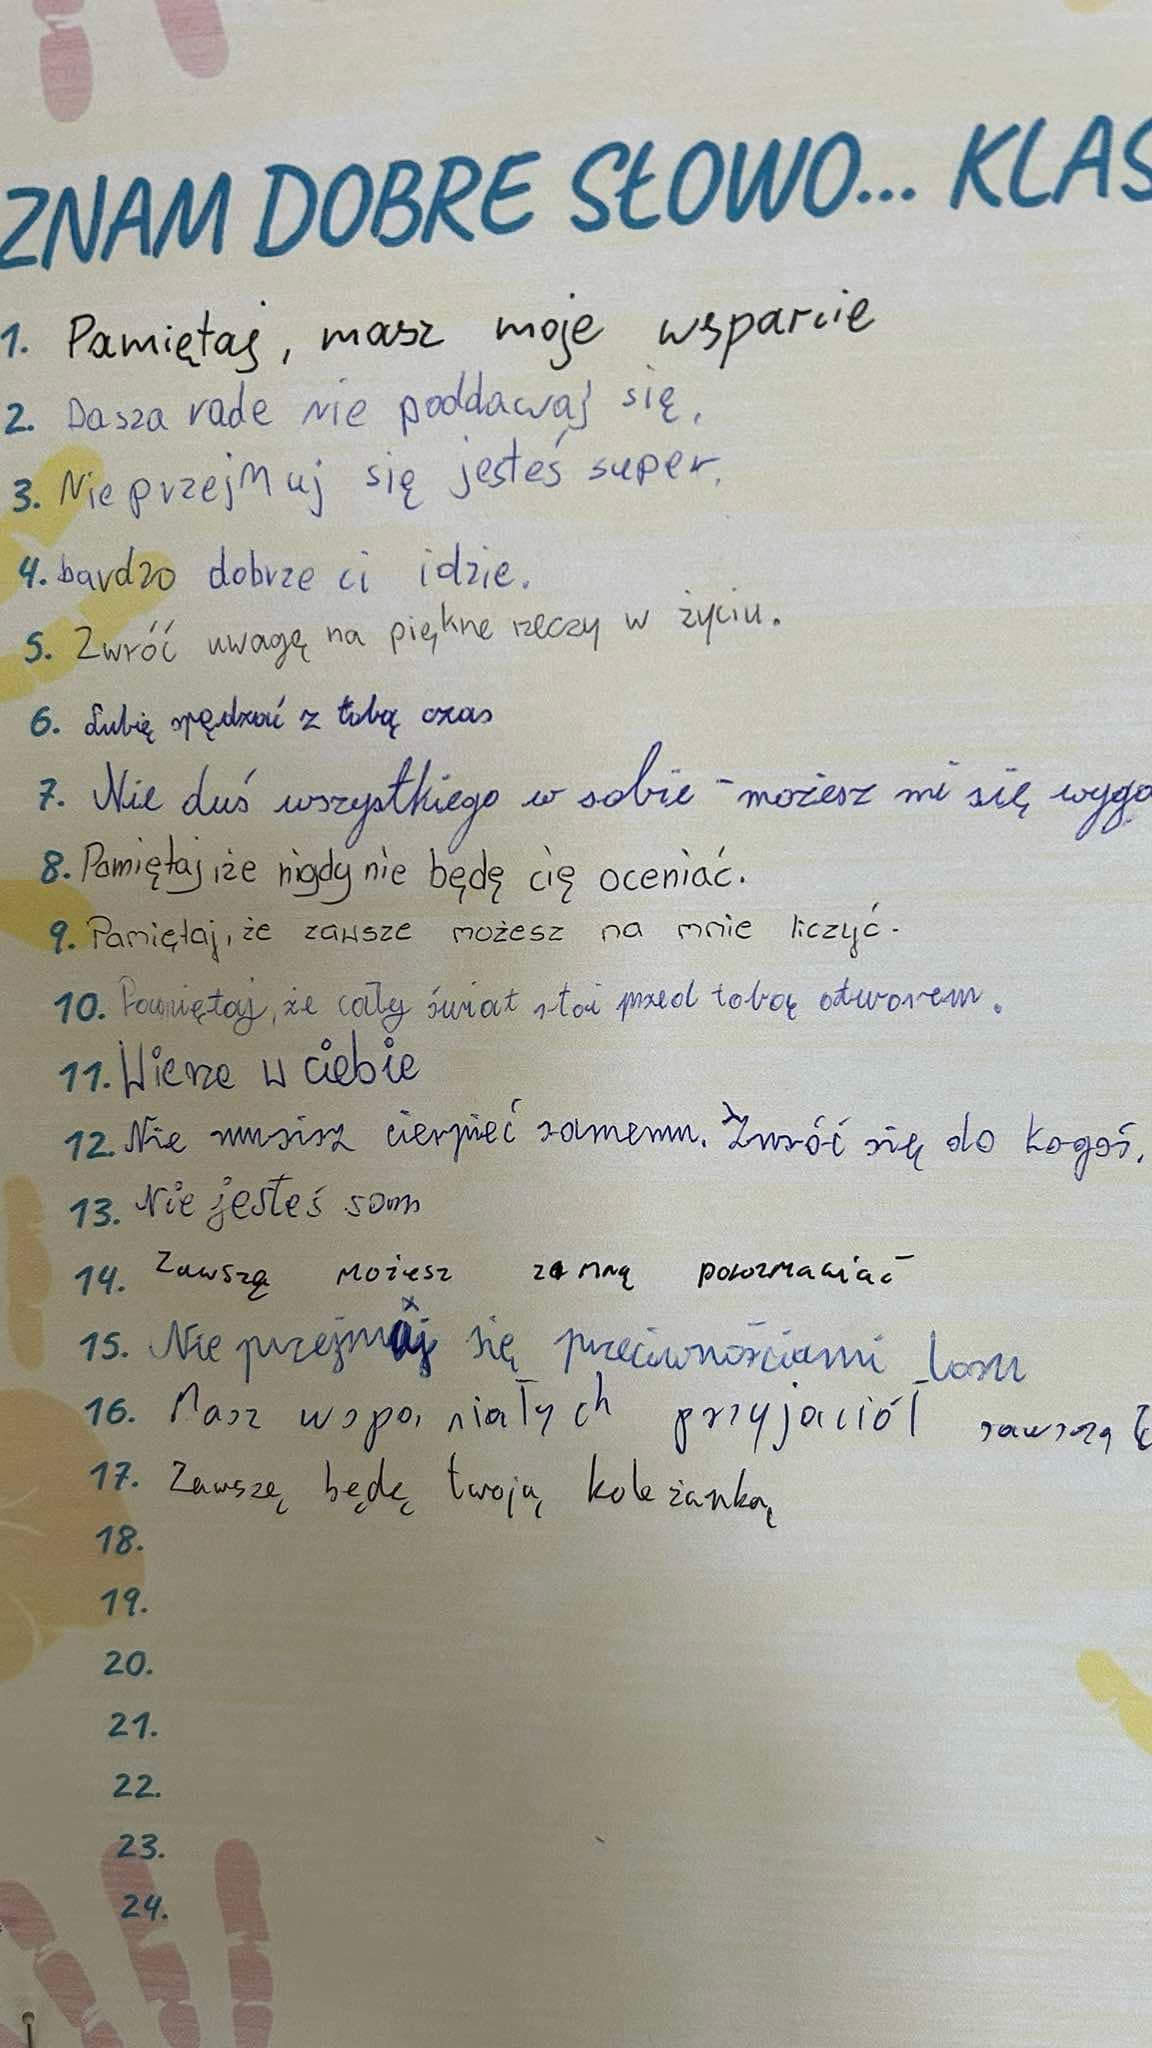 ZNAM DOBRE SŁOWO... KLAS
1. Pamiętaj, masz moje wsparcie
2. Dasza rade nie poddawaj się.
3. Nie przejmuj się jesteś super.
4. bardzo dobrze ci idzie.
5. Zwróć uwagę na piękne rzeczy w życiu.
6. Lubię spędzać z tobą czas
7. Nie duś wszystkiego w sobie - możesz mi się wyga
8. Pamiętaj, że nigdy nie będę cię oceniać.
9. Pamiętaj, że zawsze możesz na mnie liczyć.
10. Pamiętaj, że cały świat stoi przed tobą otworem.
11. Wierze w ciebie
12. Nie musisz cierpieć samemu. Zwróć się do kogoś.
13. Nie jesteś sam
14. Zawszą możesz zemną porozmawiać
15. Nie przejmuj się przeciwnościami losu
16. Masz wspaniałych przyjaciół
17. Zawszę będę twoją koleżanką
18.
19.
20.
21.
22.
23.
24.